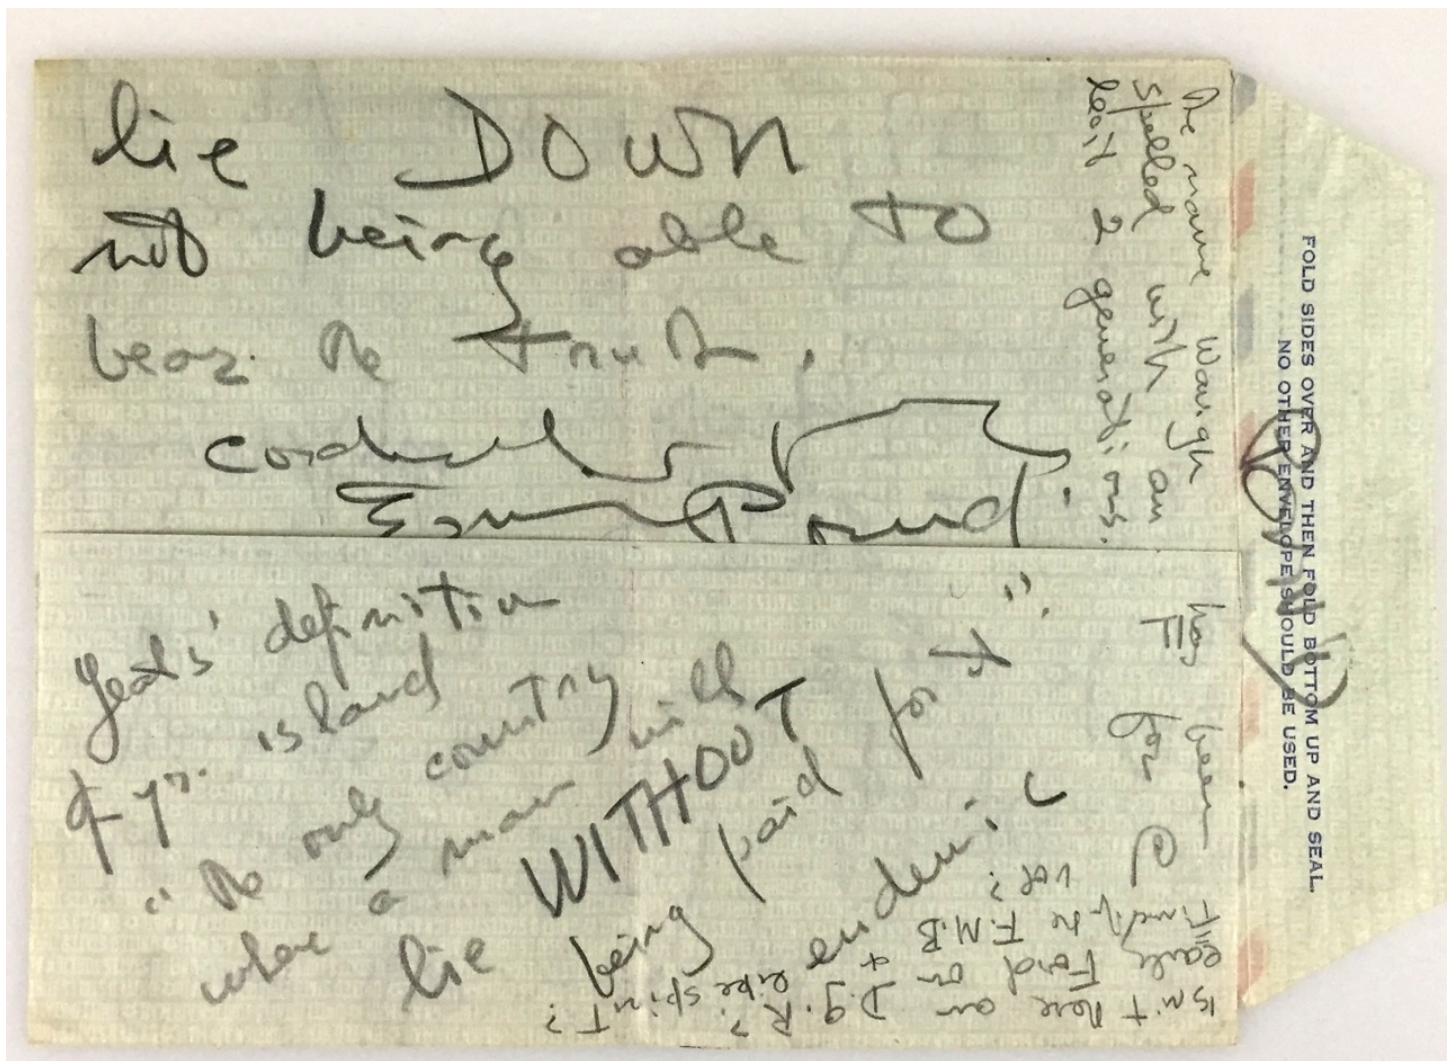 lie DOWN
not being able to
bear the truth.
cordially
Ezra Pound
Yeats' definition
of yr. island
"the only country
where a man will
lie WITHOUT
being paid for it".
endemic
the name Waugh
spelled with an
least 2 generations.
has been
for
isn't there an
early Ford on
D.G.R?
& like spirit?
F.M.B
FOLD SIDES OVER AND THEN FOLD BOTTOM UP AND SEAL.
NO OTHER ENVELOPE SHOULD BE USED.